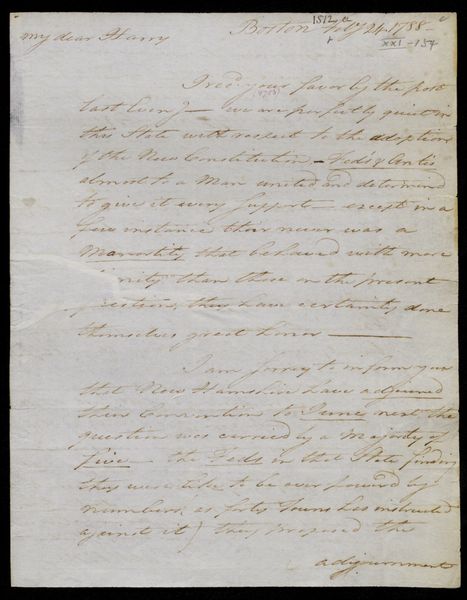 1512
Boston Feby 24. 1788
XXI-154
My dear Harry
I recd your favor by the post
last Eveng — we are perfectly quiet in
this State with respect to the adoption
of the New Constitution — Feds & Antis
almost to a Man united and determined
to give it every Support — except in a
few instance their never was a
Manority that behaved with more
than those on the present
question, they have certainly done
themselves great honor —
I am Sorrey to inform you
that New Hamshire have adjurned
their Convention to June next the
question was carried by a Majority of
five — the Feds in that State finding
they were like to be over powerd by
numbers as forty Towns has instructed
against it) they proposed the
adjournment